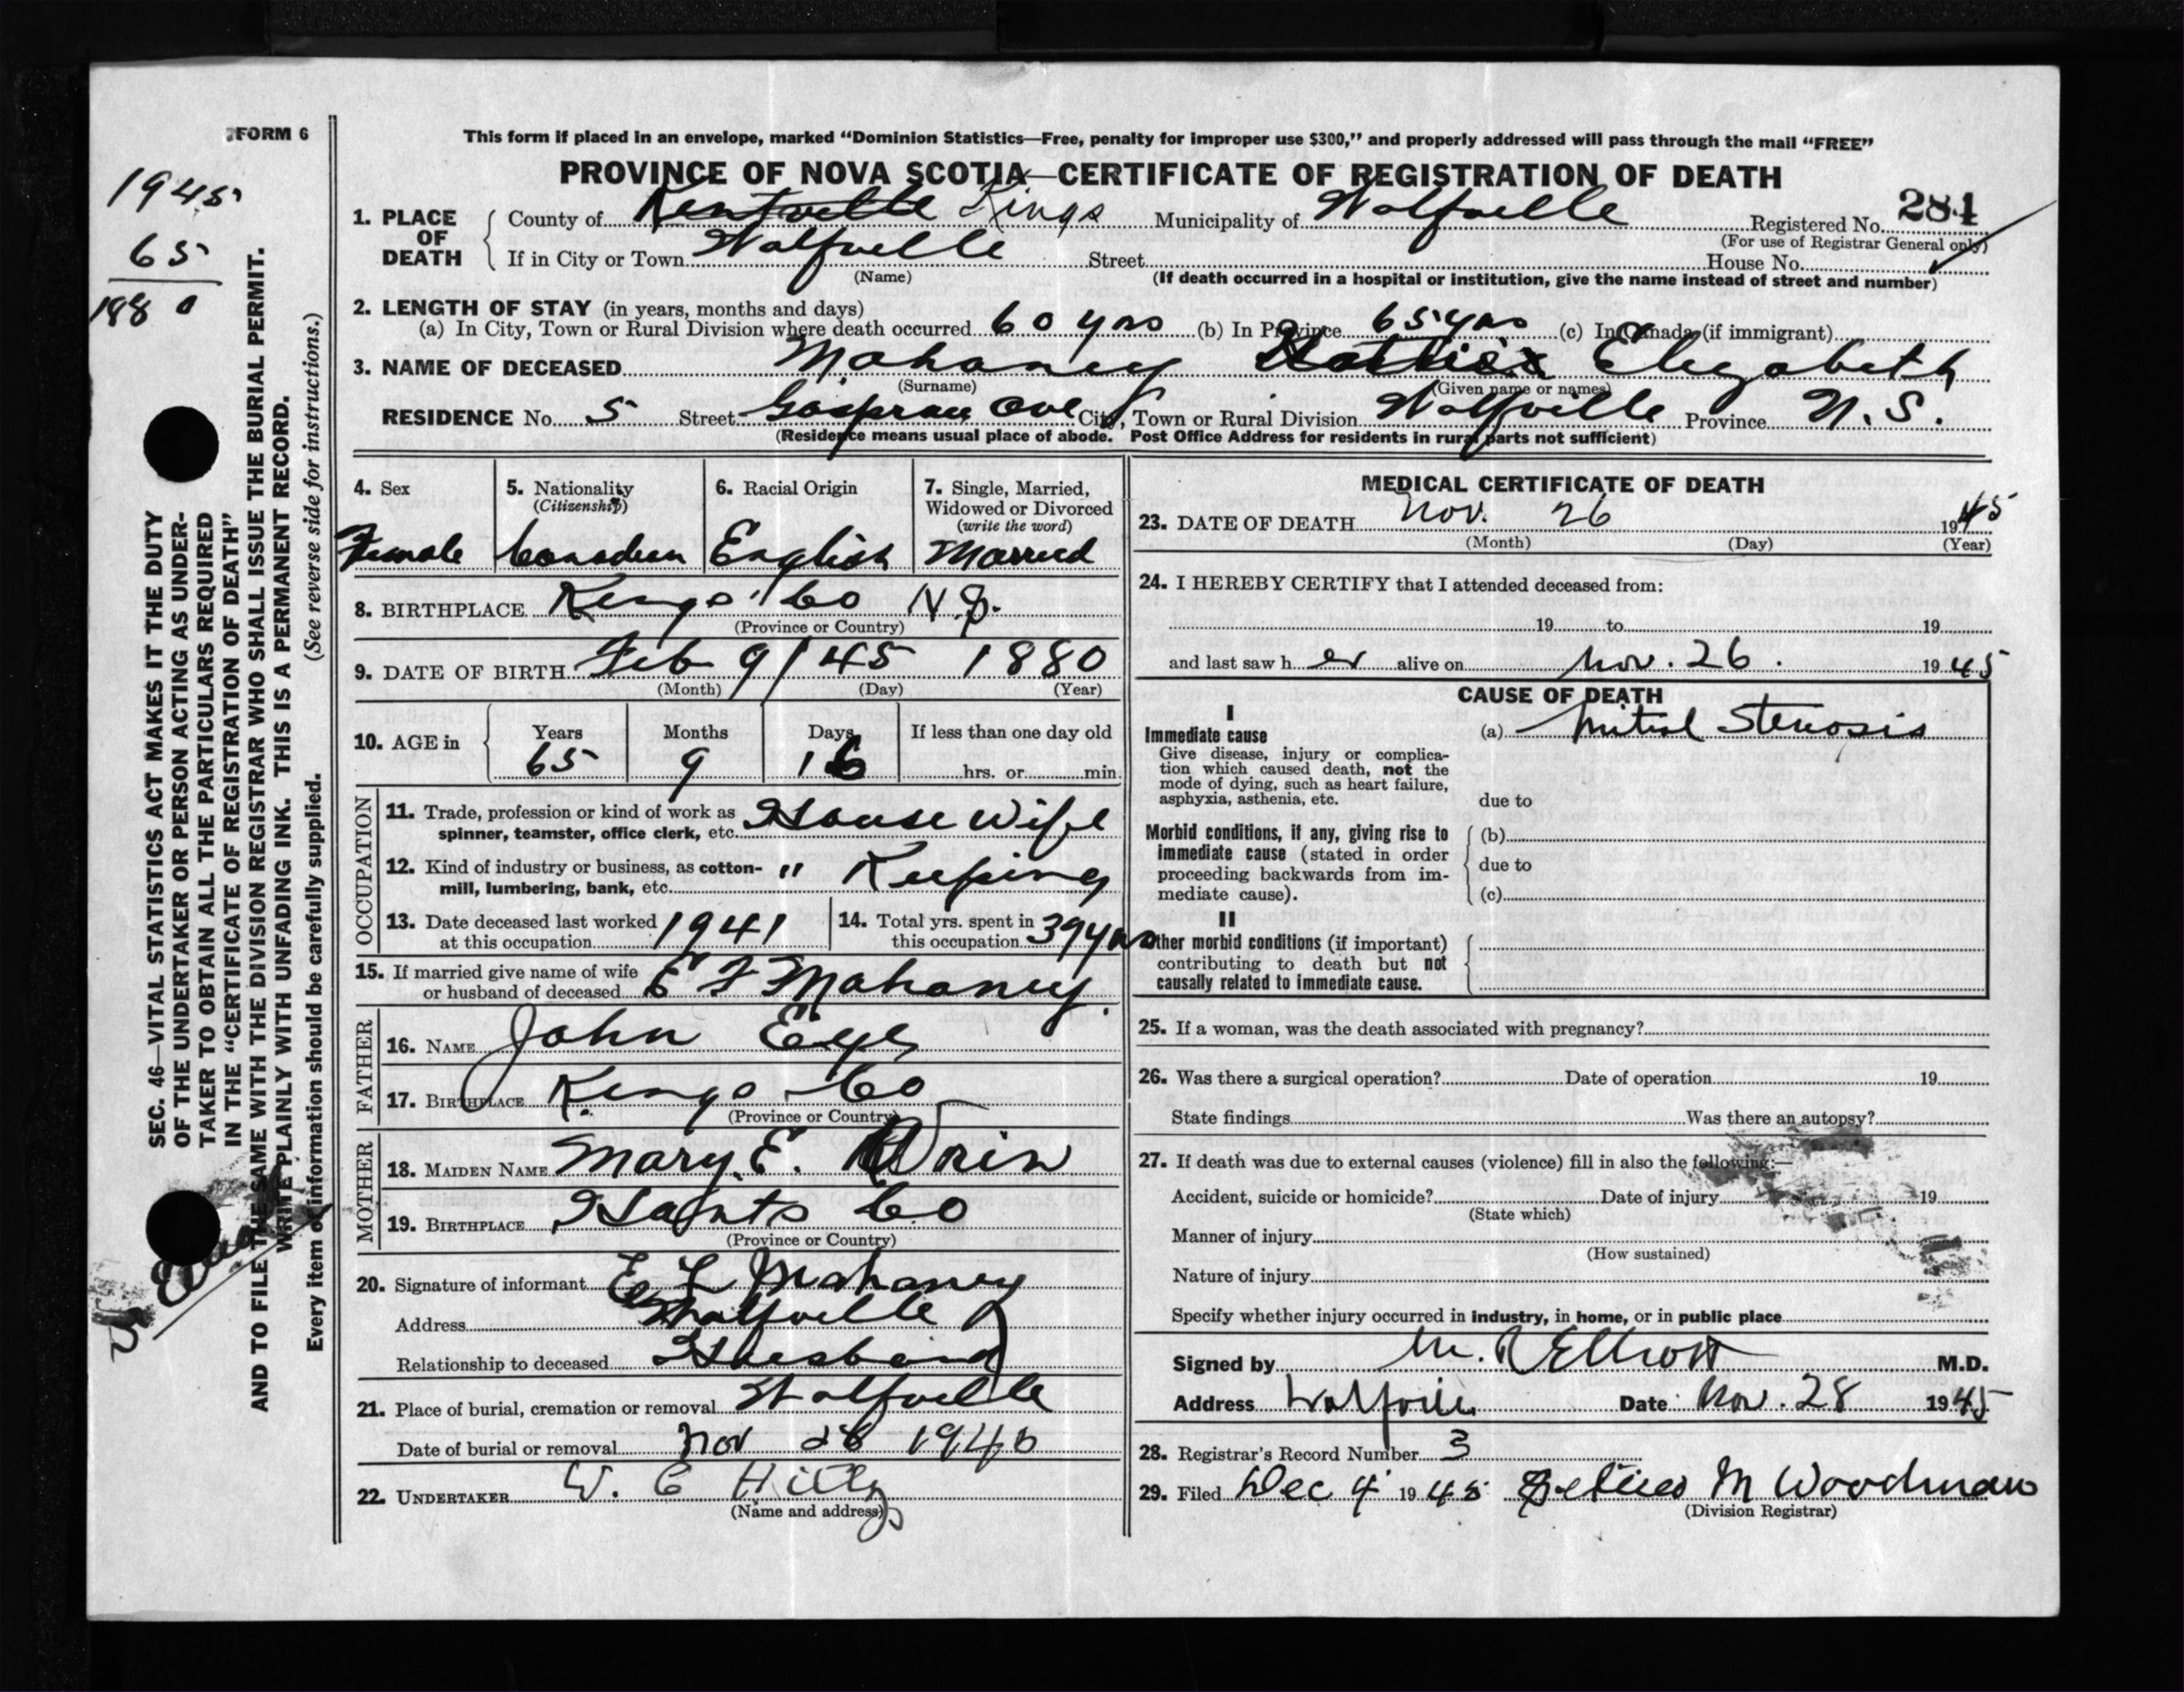 FORM 6
1945
65
1880
This form if placed in an envelope, marked "Dominion Statistics—Free, penalty for improper use $300," and properly addressed will pass through the mail "FREE"
PROVINCE OF NOVA SCOTIA—CERTIFICATE OF REGISTRATION OF DEATH
284
1. PLACE OF DEATH
County of Kentville Kings Municipality of Wolfville Registered No.
(For use of Registrar General only)
If in City or Town Wolfville Street House No.
(Name) (If death occurred in a hospital or institution, give the name instead of street and number)
2. LENGTH OF STAY (in years, months and days)
(a) In City, Town or Rural Division where death occurred 60 yrs (b) In Province 65 yrs (c) In Canada (if immigrant)
3. NAME OF DECEASED Mahaney Elizabeth
(Surname) (Given name or names)
RESIDENCE No. 5 Street Gaspreau Ave City, Town or Rural Division Wolfville Province N.S.
(Residence means usual place of abode. Post Office Address for residents in rural parts not sufficient)
4. Sex
Female
5. Nationality
(Citizenship)
Canadian
6. Racial Origin
English
7. Single, Married,
Widowed or Divorced
(write the word)
Married
8. BIRTHPLACE Kings Co N.S.
(Province or Country)
9. DATE OF BIRTH Feb 9/45 1880
(Month) (Day) (Year)
10. AGE in
Years Months Days If less than one day old
65 9 16 hrs. or min.
OCCUPATION
11. Trade, profession or kind of work as
spinner, teamster, office clerk, etc. House Wife
12. Kind of industry or business, as cotton-
mill, lumbering, bank, etc. " Keeping
13. Date deceased last worked
at this occupation 1941
14. Total yrs. spent in
this occupation 39 yrs
15. If married give name of wife
or husband of deceased E F Mahaney
FATHER
16. NAME John Eye
17. BIRTHPLACE Kings Co
(Province or Country)
MOTHER
18. MAIDEN NAME Mary E.
19. BIRTHPLACE Hants Co
(Province or Country)
20. Signature of informant E F Mahaney
Address Wolfville
Relationship to deceased Husband
21. Place of burial, cremation or removal Wolfville
Date of burial or removal Nov 28 1945
22. UNDERTAKER W. C Hiltz
(Name and address)
MEDICAL CERTIFICATE OF DEATH
23. DATE OF DEATH Nov. 26 1945
(Month) (Day) (Year)
24. I HEREBY CERTIFY that I attended deceased from:
19 to 19
and last saw her alive on Nov. 26. 1945
CAUSE OF DEATH
I
Immediate cause
Give disease, injury or complica-
tion which caused death, not the
mode of dying, such as heart failure,
asphyxia, asthenia, etc.
(a) Mitral Stenosis
due to
Morbid conditions, if any, giving rise to
immediate cause (stated in order
proceeding backwards from im-
mediate cause).
(b)
due to
(c)
II
Other morbid conditions (if important)
contributing to death but not
causally related to immediate cause.
25. If a woman, was the death associated with pregnancy?
26. Was there a surgical operation? Date of operation 19
State findings Was there an autopsy?
27. If death was due to external causes (violence) fill in also the following:—
Accident, suicide or homicide? Date of injury 19
(State which)
Manner of injury
(How sustained)
Nature of injury
Specify whether injury occurred in industry, in home, or in public place
Signed by M. R Elliott M.D.
Address Wolfville Date Nov. 28 1945
28. Registrar's Record Number 3
29. Filed Dec 4 1945 M Woodman
(Division Registrar)
SEC. 46—VITAL STATISTICS ACT MAKES IT THE DUTY
OF THE UNDERTAKER OR PERSON ACTING AS UNDER-
TAKER TO OBTAIN ALL THE PARTICULARS REQUIRED
IN THE "CERTIFICATE OF REGISTRATION OF DEATH"
AND TO FILE THE SAME WITH THE DIVISION REGISTRAR WHO SHALL ISSUE THE BURIAL PERMIT.
WRITE PLAINLY WITH UNFADING INK. THIS IS A PERMANENT RECORD.
Every item of information should be carefully supplied. (See reverse side for instructions.)